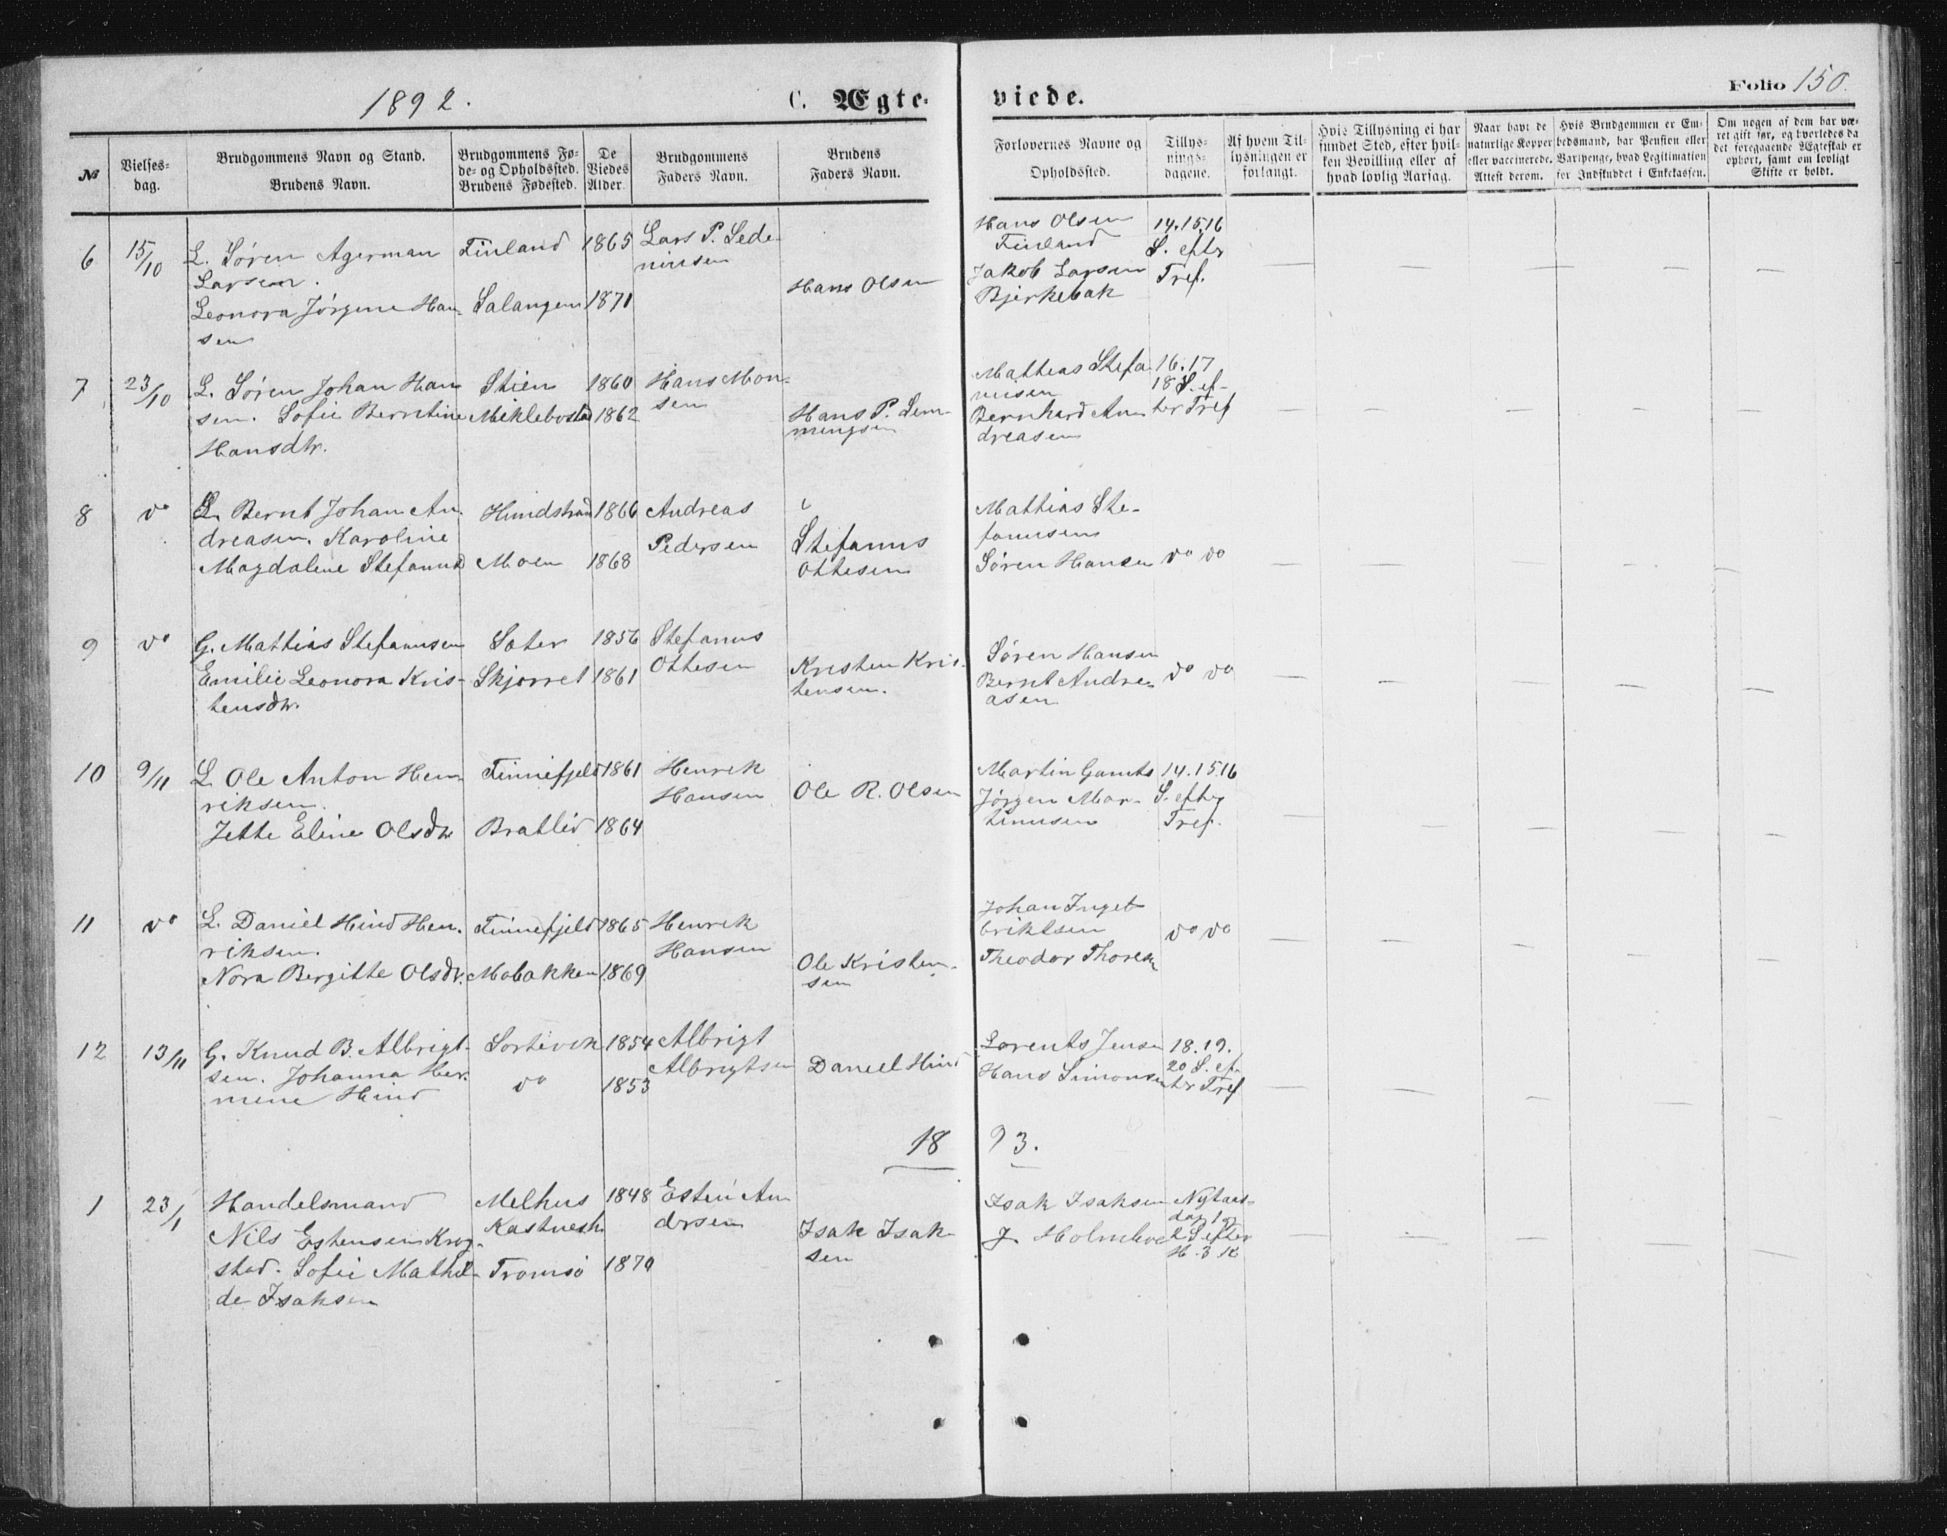 1892.
C. Ægte-
viede.
Folio 150.
№
Vielses-
dag.
Brudgommens Navn og Stand.
Brudens Navn.
Brudgommens Fø-
de- og Opholdssted.
Brudens Fødested.
De
Viedes
Alder.
Brudgommens
Faders Navn.
Brudens
Faders Navn.
Forlovernes Navne og
Opholdssted.
Tillys-
nings-
dagene.
Af hvem Til-
lysningen er
forlangt.
Hvis Tillysning ei har
fundet Sted, efter hvil-
ken Bevilling eller af
hvad lovlig Aarsag.
Naar havt de
naturlige Kopper
eller vaccinerede.
Attest derom.
Hvis Brudgommen er Em-
bedsmand, har Pension eller
Vartpenge, hvad Legitimation
for Indskuddet i Enkekassen.
Om nogen af dem har væ-
ret gift før, og hvorledes da
det foregaaende Ægteskab er
ophørt, samt om lovligt
Skifte er holdt.
6
15/10
L. Søren Agerman
Larsen.
Leonora Jørgine Han-
sen
Finland
Salangen
1865
1871
Lars P.
Hans Olsen
Hans Olsen
Finland
Jakob Larsen
Bjerkebak
14.15.16
S. efter
Tref.
7
23/10
L. Søren Johan Han
sen. Sofie Berntine
Hansdtr.
Stien
Miklebostad
1860
1862
Hans Mon-
sen
Hans P. Lem-
mingsen
Mattias Stefa
nusen
Bernhard An
dreasen
16.17
18 S. ef-
ter Tref
8
do
L. Bernt Johan An.
dreasen. Karoline
Magdalene Stefanusd
Hundstrand
Moen
1866
1868
Andreas
Pedersen
Stefanus
Ottesen
Mattias Ste-
fanusen
Søren Hansen
do do
9
do
G. Mattias Stefanusen
Emilie Leonora Kris-
tensdtr.
Sæter
Skjørret
1856
1861
Stefanus
Ottesen
Kristen Kris-
tensen.
Søren Hansen
Bernt Andre-
asen
do do
10
9/11
L Ole Anton Hen
riksen.
Jette Eline Olsdtr
Finnefjeld
Bratlid
1861
1864
Henrik
Hansen
Ole R. Olsen
Martin
Jørgen Mar-
tinusen
14.15.16
S. efter
Tref.
11
do
L. Daniel Hind Hen.
riksen.
Nora Bergitte Olsdtr.
Finnefjeld
Mobakken
1865
1869
Henrik
Hansen
Ole Kristen-
sen
Johan Inge
briktsen
Theodor Thoresen
do do
12
13/11
G. Knud B. Albrigt-
sen. Johanna Her.
mine Hind
Sortevik
do
1854
1853
Albrigt
Albrigtsen
Daniel Hind
Lorents Jensen
Hans Simonsen
18.19.
20 S. ef-
ter Tref
18 93.
1
23/1
Handelsmand
Nils Estensen Krog-
stad. Sofie Mathil-
de Isaksen
Melhus
Kastnesh
Tromsø
1848
1870
Esten An
dersen
Isak Isak
sen
Isak Isaksen
J. Holmboe
Nytaars-
dag 1 og
2 S efter
H. 3 K